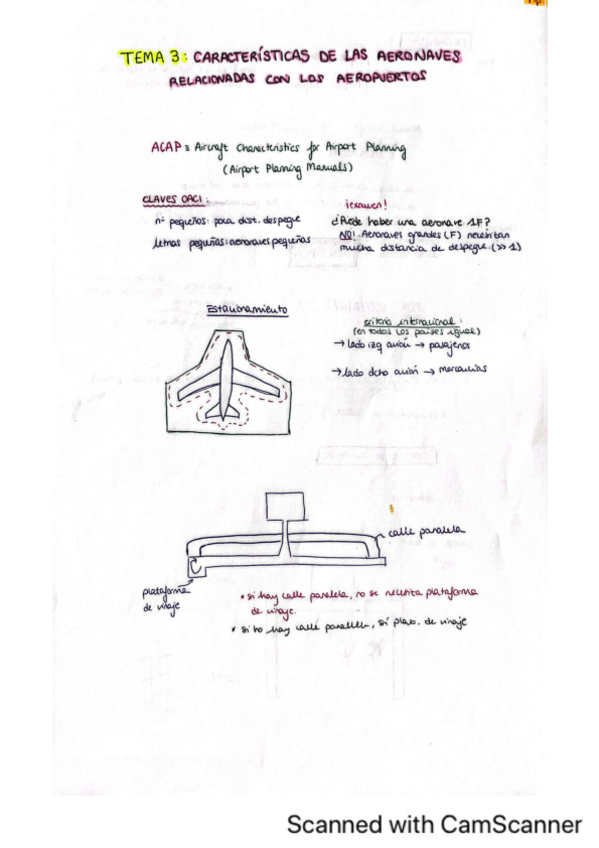 TEMA 3: CARACTERÍSTICAS DE LAS AERONAVES
RELACIONADAS CON LOS AEROPUERTOS
ACAP = Aircraft Characteristics for Airport Planning
(Airport Planning Manuals)
CLAVES OACI:
nº pequeños: poca dist. despegue
letras pequeñas: aeronaves pequeñas
¡examen!
¿Puede haber una aeronave 1F?
NO! Aeronaves grandes (F) necesitan
mucha distancia de despegue. (>> 1)
Estacionamiento
criterio internacional:
(en todos los países igual)
→ lado izq avión → pasajeros
→ lado dcho avión → mercancías
calle paralela
plataforma
de viraje
• si hay calle paralela, no se necesita plataforma
de viraje.
• si no hay calle paralela, sí plat. de viraje
Scanned with CamScanner